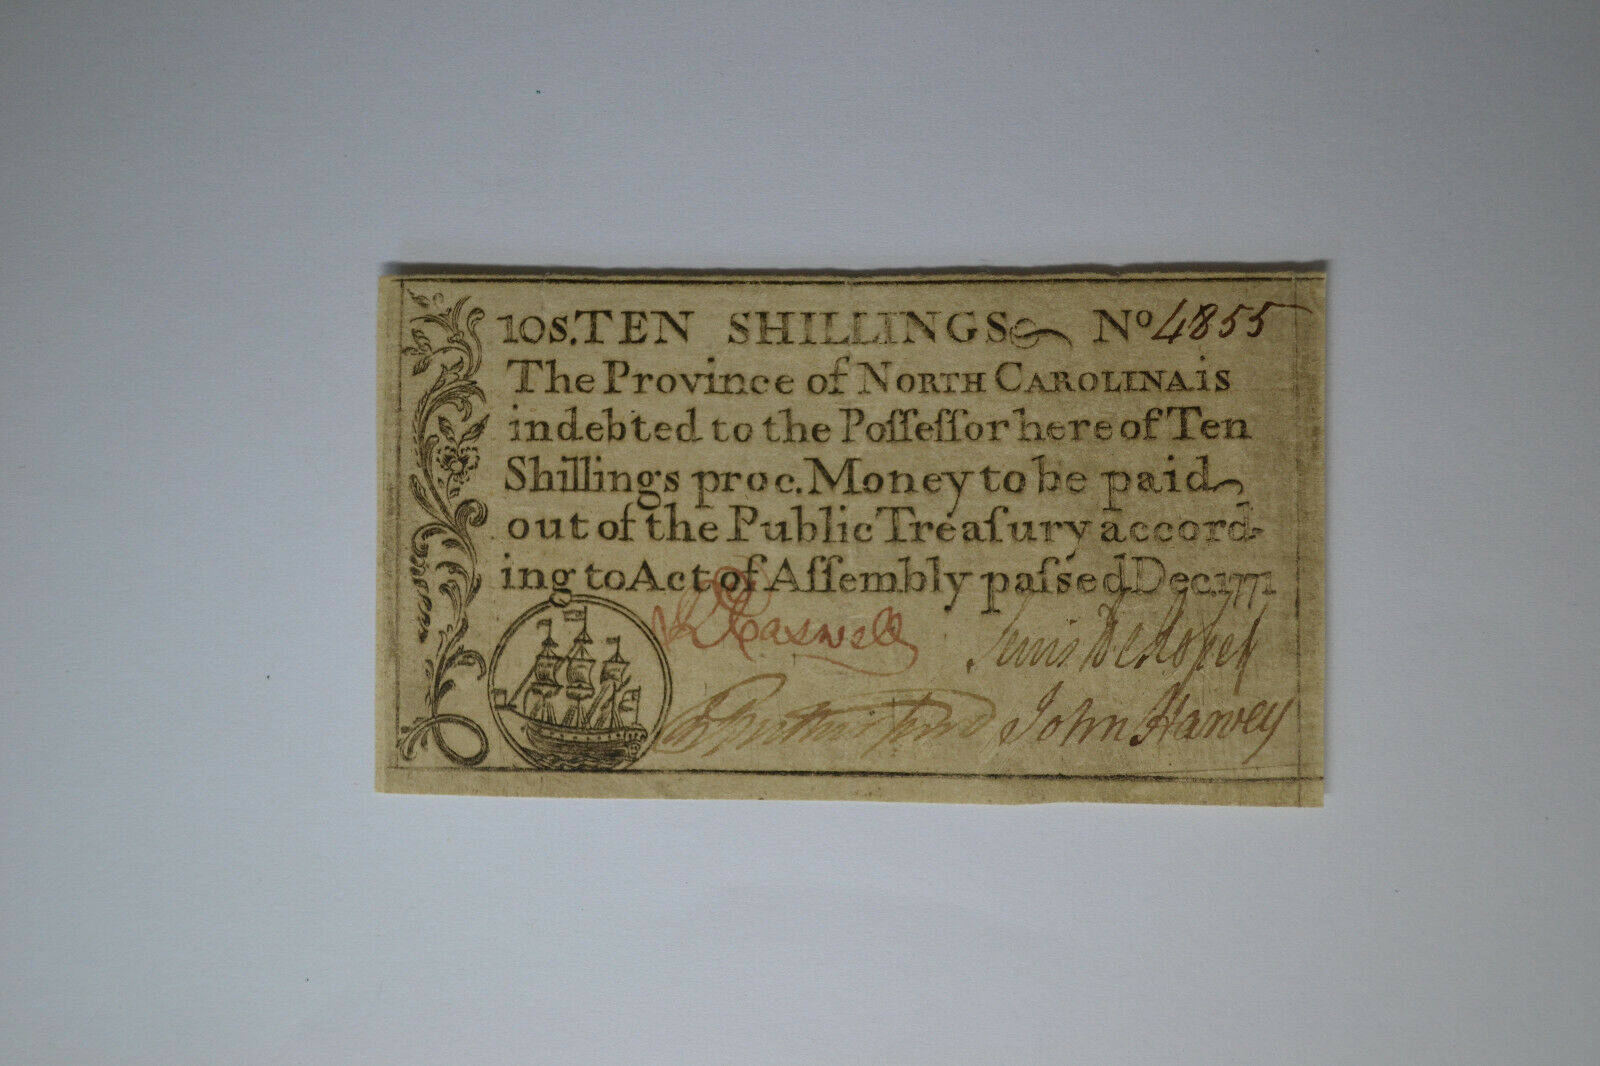 10s. TEN SHILLINGS No 4855
The Province of NORTH CAROLINA is
indebted to the Poſſeſſor here of Ten
Shillings proc. Money to be paid
out of the Public Treaſury accord-
ing to Act of Aſſembly paſsed Dec. 1771
R Caswell
Lewis DeRosset
John Harvey